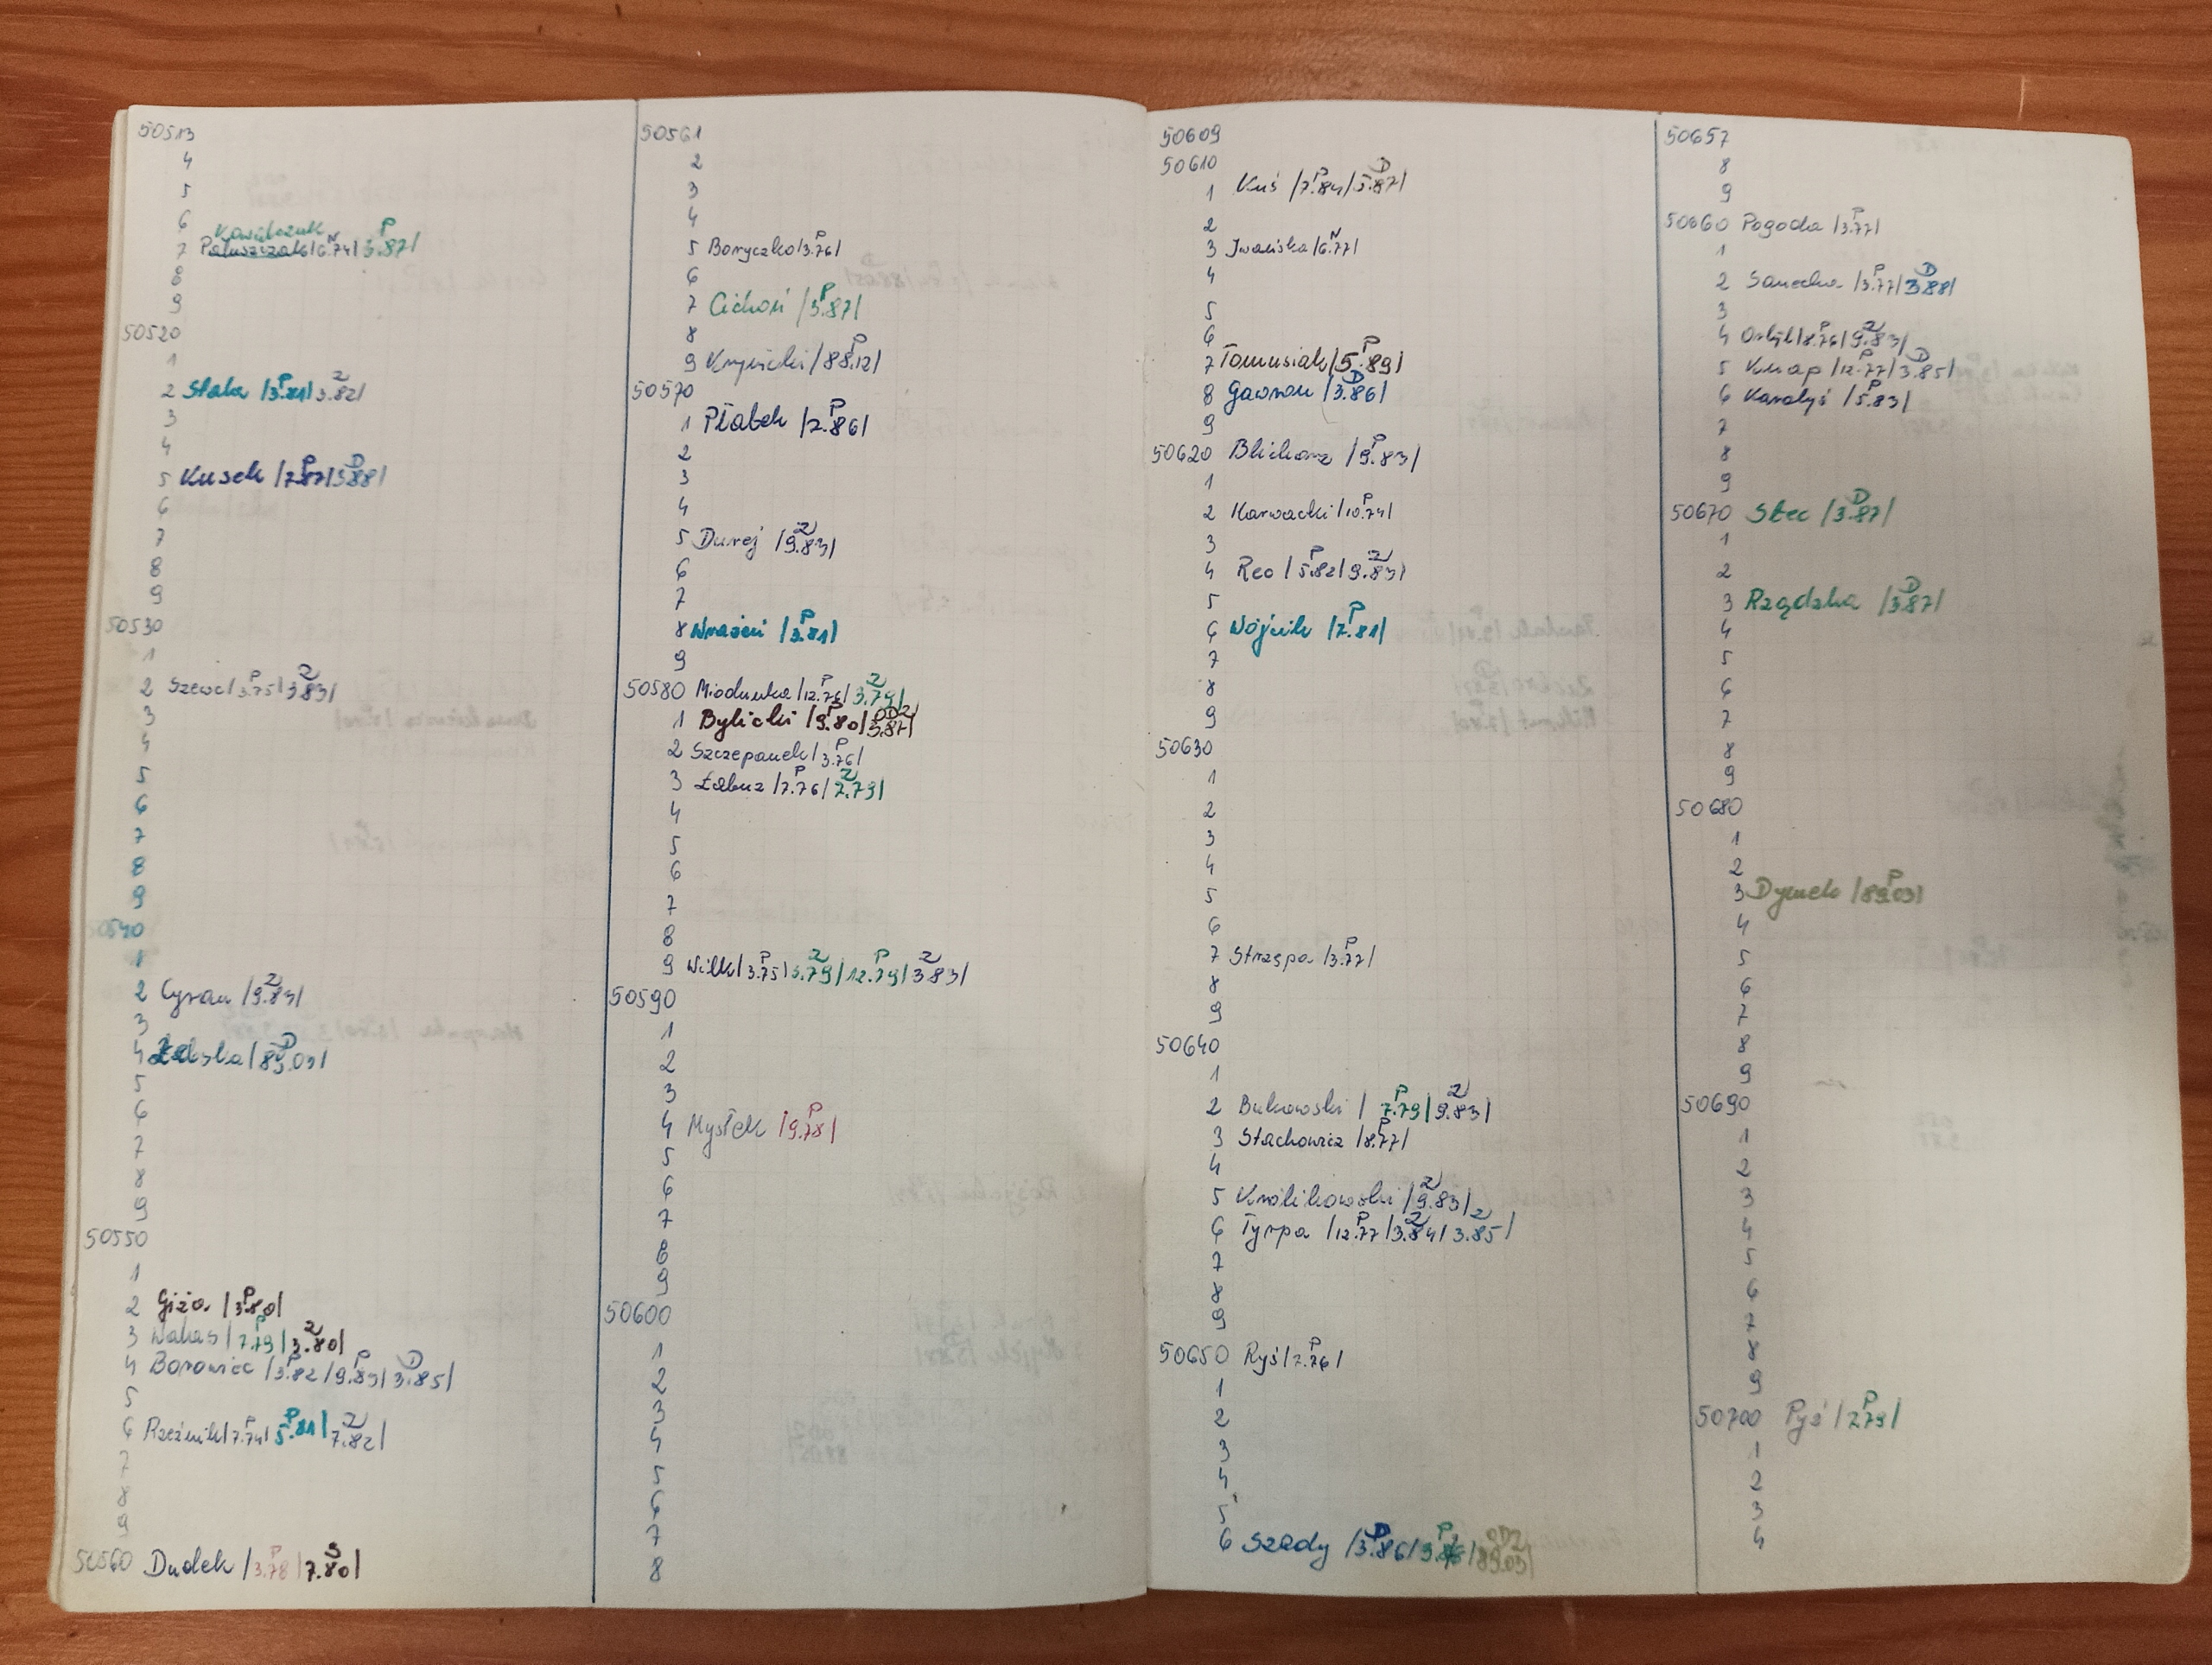 50513
4
5
6 Kowalczuk
7 Paluszczak |6.74| 3.87| N P
8
9
50520
1
2 Stala |3.81|3.82| P Z
3
4
5 Kusek |7.87|3.88| P D
6
7
8
9
50530
1
2 Szewc |3.75|3.83| P Z
3
4
5
6
7
8
9
50540
1
2 Cyran |9.83| Z
3
4 |89.03| D
5
6
7
8
9
50550
1
2 Giża |3.80| P
3 Wahas |7.79|3.80| P Z
4 Borowiec |3.82|9.83|3.85| P P D
5
6 Rzeźnik |7.74|5.81|7.82| P P Z
7
8
9
50560 Dudek |3.78|7.80| P S
50561
2
3
4
5 Boryczko |3.76| P
6
7 Cichoń |3.87| P
8
9 Krynicki |88.12| P
50570
1 Płatek |7.86| P
2
3
4
5 Durej |9.83| Z
6
7
8 Wrażeń |3.81| P
9
50580 Miodunka |12.76|3.79| P Z
1 Bylicki |9.80|3.87| P ODZ
2 Szczepanek |3.76| P
3 Łabuz |7.76|7.79| P Z
4
5
6
7
8
9 Wilk |3.75|5.79|12.79|3.83| P Z P Z
50590
1
2
3
4 Mysłek |9.78| P
5
6
7
8
9
50600
1
2
3
4
5
6
7
8
50609
50610
1 Kuś |7.84|5.87| P D
2
3 Iwańska |6.77| N
4
5
6
7 Tomusiak |5.89| P
8 Gawron |3.86| D
9
50620 Blicharz |9.83| P
1
2 Karwacki |10.74| P
3
4 Reo |5.82|9.83| P Z
5
6 Wójcik |7.81| P
7
8
9
50630
1
2
3
4
5
6
7 Strzępa |3.77| P
8
9
50640
1
2 Bukowski |7.79|9.83| P Z
3 Stachowicz |8.77| P
4
5 Królikowski |9.83| Z
6 Tyrpa |12.77|3.84|3.85| P Z Z
7
8
9
50650 Ryś |7.76| P
1
2
3
4
5
6 Szady |3.86| |89.03| D P ODZ
50657
8
9
50660 Pogoda |3.77| P
1
2 Sanecka |3.77|3.88| P D
3
4 |8.76|9.83| P Z
5 Knap |12.77|3.85| P D
6 Karalyś |5.83| P
7
8
9
50670 Stec |3.87| D
1
2
3 Rządzka |3.87| D
4
5
6
7
8
9
50680
1
2
3 Dymek |89.03| P
4
5
6
7
8
9
50690
1
2
3
4
5
6
7
8
9
50700 Pyś |7.79| P
1
2
3
4